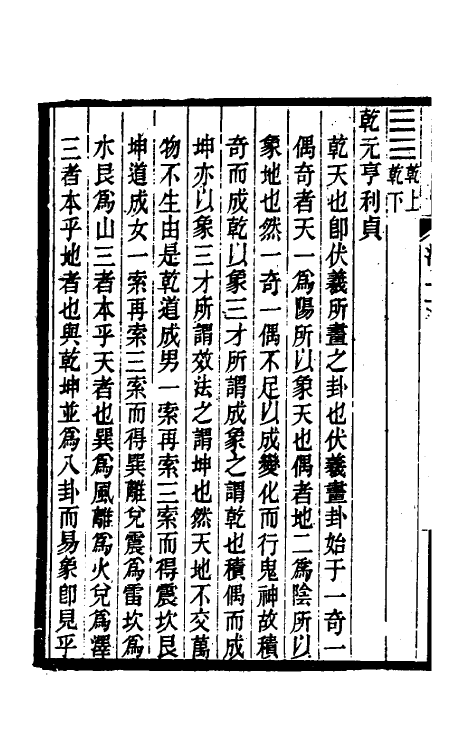 ䷀乾上乾下
乾元亨利貞
乾天也卽伏羲所畫之卦也伏羲畫卦始于一奇一
偶奇者天一爲陽所以象天也偶者地二爲陰所以
象地也然一奇一偶不足以成變化而行鬼神故積
奇而成乾以象三才所謂成象之謂乾也積偶而成
坤亦以象三才所謂效法之謂坤也然天地不交萬
物不生由是乾道成男一索再索三索而得震坎艮
坤道成女一索再索三索而得巽離兌震爲雷坎爲
水艮爲山三者本乎天者也巽爲風離爲火兌爲澤
三者本乎地者也與乾坤並爲八卦而易象卽見乎